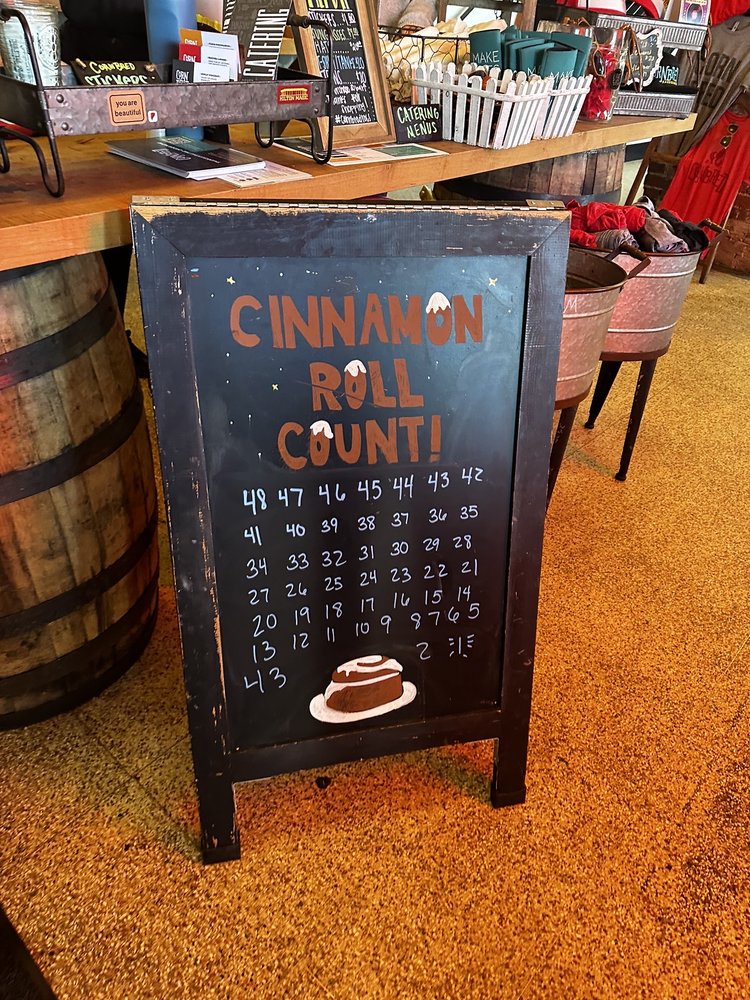 CATERING
CORNBREAD
STICKERS
you are
beautiful
MAKE
CATERING
MENUS
CINNAMON
ROLL
COUNT!
48 47 46 45 44 43 42
41 40 39 38 37 36 35
34 33 32 31 30 29 28
27 26 25 24 23 22 21
20 19 18 17 16 15 14
13 12 11 10 9 8 7 6 5
4 3 2 1